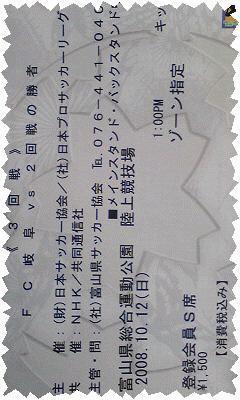 《３回戦》
ＦＣ岐阜 vs ２回戦の勝者
主 催：(財)日本サッカー協会／(社)日本プロサッカーリーグ
共 催：ＮＨＫ／共同通信社
主管・問：(社)富山県サッカー協会 ℡０７６－４４１－０４
■メインスタンド・バックスタンド
富山県総合運動公園 陸上競技場
2008.10.12(日) 1:00PM キッ
登録会員Ｓ席 ゾーン指定
¥1,500 【消費税込み】